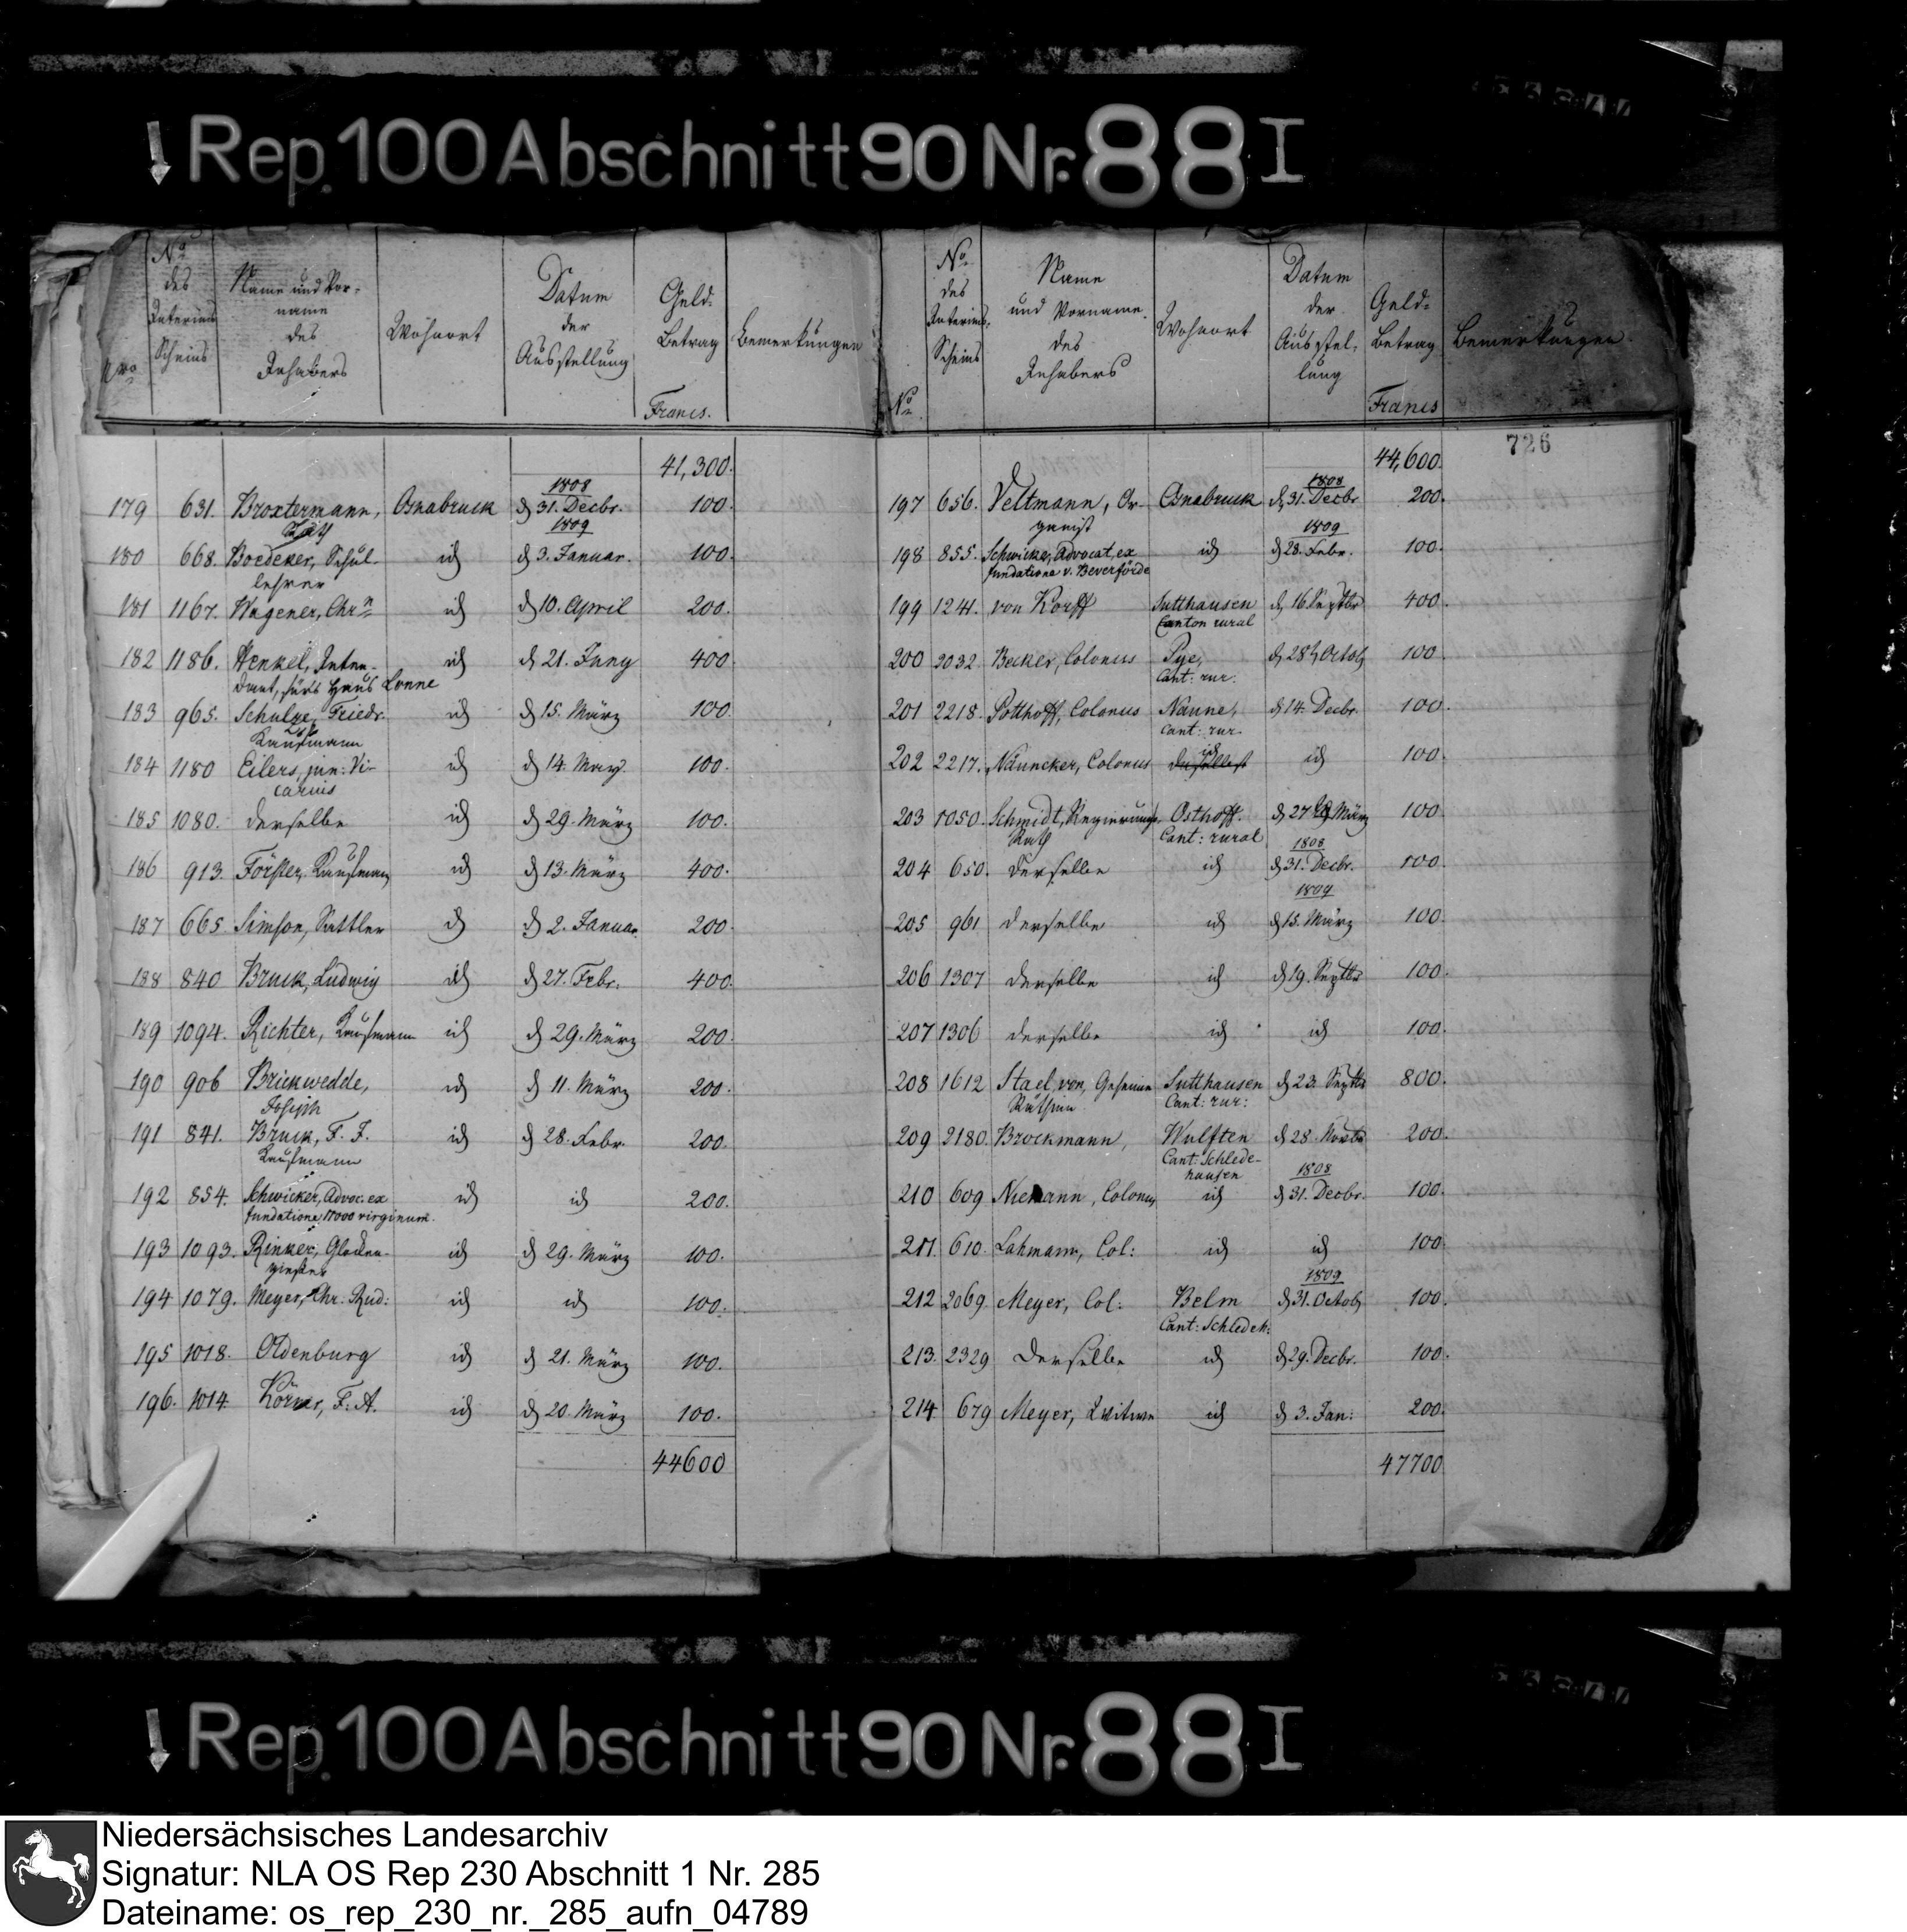 Rep. 100 Abschnitt 90 Nr. 88 I
Nro
No des Interims Scheins
Name und Vorname des Inhabers
Wohnort
Datum der Ausstellung
Geld-Betrag Francs.
Bemerkungen
41,300.
1808
179 631. Broxtermann, Osnabruck d 31. Decbr. 100.
Rath
1809
180 668. Boedeker, Schul- id d 3. Januar. 100.
lehrer
181 1167. Wagener, Chrn id d 10. April 200.
182 1186. Henkel, Inten- id d 21. Juny 400
dant, fürs Haus Lonne
183 965. Schulze, Friedr. id d 15. März 100
Kaufmann
184 1180 Eilers, jun: Vi- id d 14. May. 100.
carius
185 1080. derselbe id d 29. März 100.
186 913. Förster, Kaufmann id d 13. März 400.
187 665. Simson, Sattler id d 2. Januar. 200.
188 840 Bruck, Ludwig id d 27. Febr. 400.
189 1094. Richter, Kaufmann id d 29. März 200.
190 906 Brickwedde, id d 11. März 200.
Joseph
191 841. Bruck, F. F. id d 28. Febr. 200.
Kaufmann
192 854. Schwicker, Advoc. ex id id 200.
fundatione 11000 virginum.
193 1093. Rinker, Glocken- id d 29. März 100.
gießer
194 1079. Meyer, Chr. Rud: id id 100.
195 1018. Oldenburg id d 21. März 100.
196. 1014. Körner, F. A. id d 20. März 100.
44600
No.
No. des Interims-Scheins
Name und Vorname des Inhabers
Wohnort
Datum der Ausstellung
Geld-Betrag Francs
Bemerkungen
726
44,600.
1808
197 656. Veltmann, Or- Osnabruck d 31. Decbr. 200.
ganist
1809
198 855. Schwicker, Advocat, ex id d 28. Febr. 100.
fundatione v. Beverförde
199 1241. von Korff Sutthausen d 16. Septbr 400.
Canton rural
200 2032. Becker, Colonus Pye, d 28 Octob 100
Cant: rur:
201 2218. Potthoff, Colonus Nanne, d 14. Decbr. 100.
Cant: rur.
id
202 2217. Nänncker, Colonus daselbst id 100.
203 1050. Schmidt, Regierungs- Osthoff. d 27 März 100
Rath Cant: rural
1808
204 650. derselbe id d 31. Decbr. 100.
1809
205 961 derselbe id d 15. März 100.
206 1307 derselbe id d 19. Septbr 100.
207 1306 derselbe id id 100.
208 1612 Stael, von, Geheime Sutthausen d 23. Septbr 800.
Räthin Cant: rur:
209 2180. Brockmann, Wulften d 28. Novbr 200.
Cant: Schlede-
hausen
1808
210 609 Niemann, Colonus id d 31. Decbr. 100.
211. 610. Lahmann, Col: id id 100.
1809
212 2069. Meyer, Col: Belm d 31. Octob 100.
Cant: Schledeh:
213. 2329 derselbe id d 29. Decbr. 100.
214 679 Meyer, Wittwe id d 3. Jan: 200.
47700
Rep. 100 Abschnitt 90 Nr. 88 I
Niedersächsisches Landesarchiv
Signatur: NLA OS Rep 230 Abschnitt 1 Nr. 285
Dateiname: os_rep_230_nr._285_aufn_04789